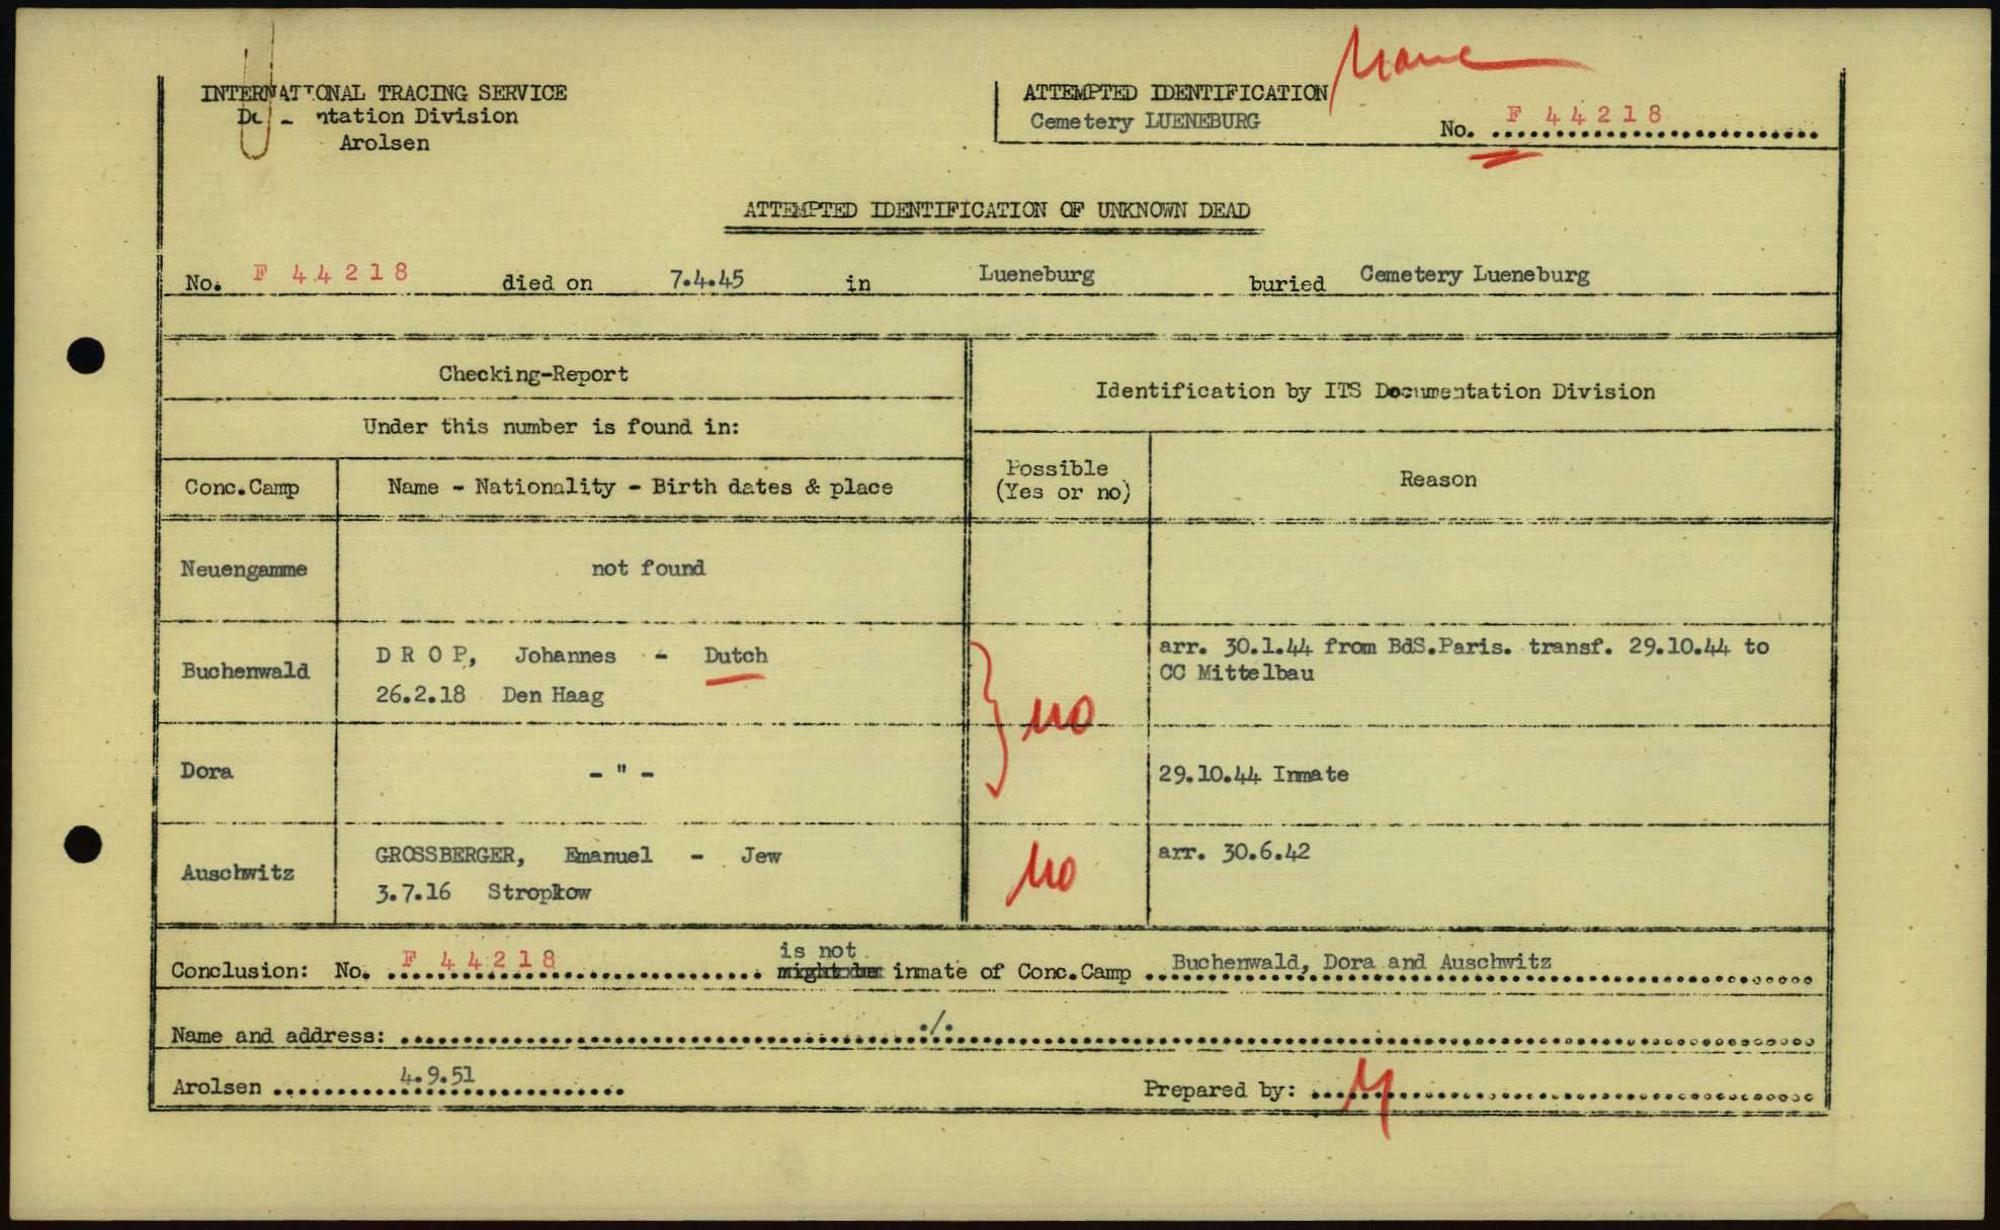 INTERNATIONAL TRACING SERVICE
ntation Division
Arolsen
ATTEMPTED IDENTIFICATION
Cemetery LUENEBURG
No. F 44218
ATTEMPTED IDENTIFICATION OF UNKNOWN DEAD
No. F 44218 died on 7.4.45 in Lueneburg buried Cemetery Lueneburg
Checking-Report
Identification by ITS Documentation Division
Under this number is found in:
Conc.Camp
Name - Nationality - Birth dates & place
Possible
(Yes or no)
Reason
Neuengamme
not found
Buchenwald
D R O P, Johannes - Dutch
26.2.18 Den Haag
no
arr. 30.1.44 from BdS.Paris. transf. 29.10.44 to
CC Mittelbau
Dora
- " -
29.10.44 Inmate
Auschwitz
GROSSBERGER, Emanuel - Jew
3.7.16 Stropkow
no
arr. 30.6.42
is not
Conclusion: No. F 44218 inmate of Conc.Camp Buchenwald, Dora and Auschwitz
Name and address: ./.
Arolsen 4.9.51
Prepared by: